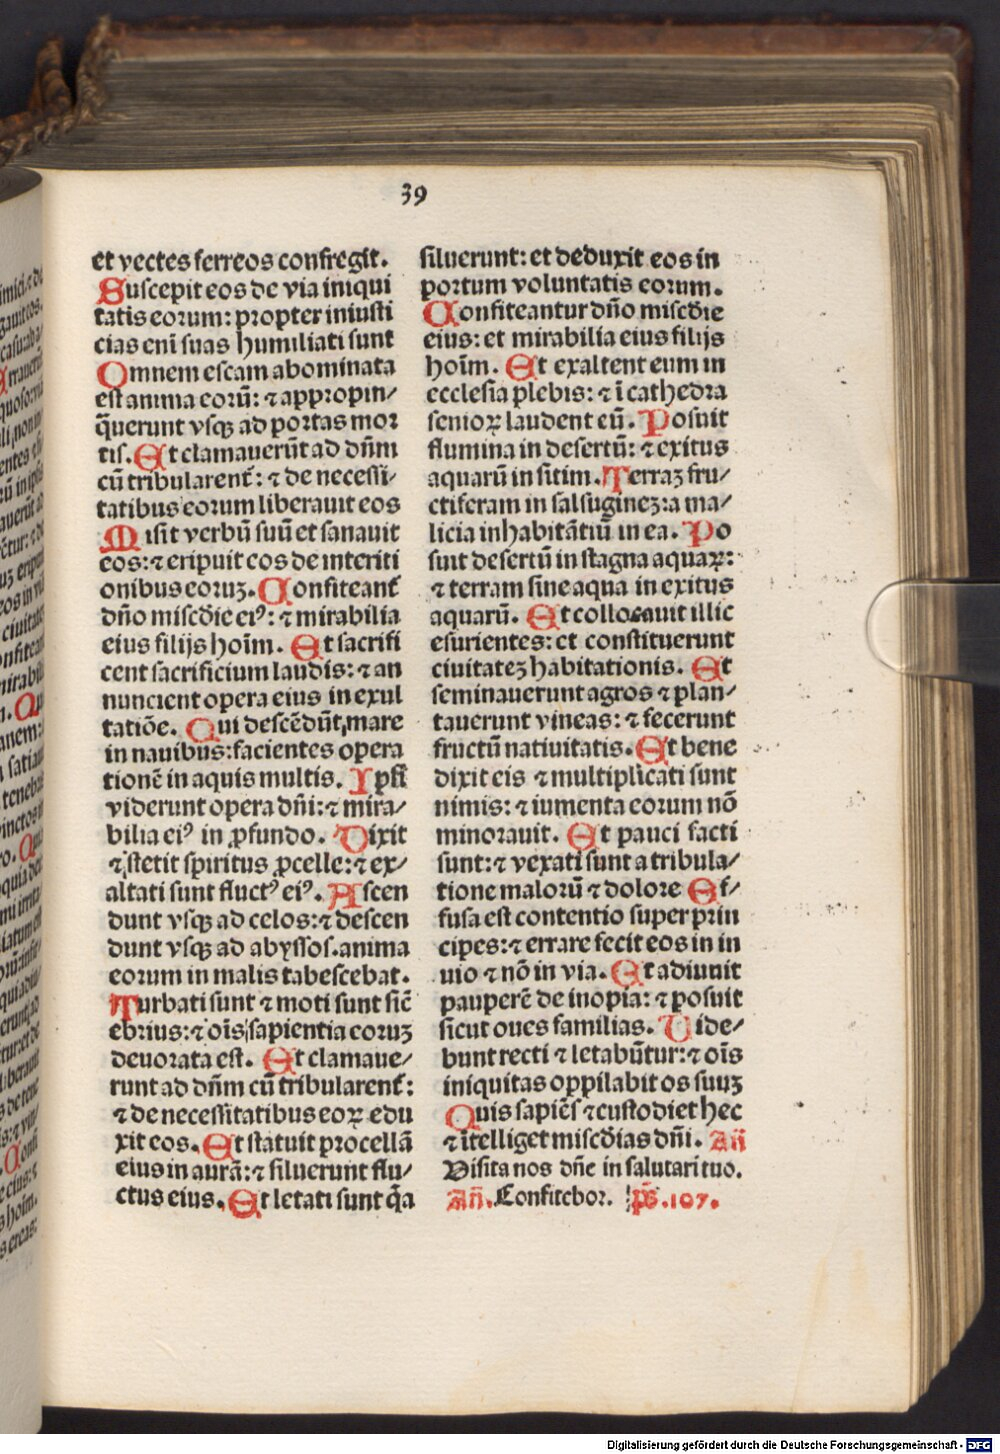 39
et vectes ferreos confregit.
Suscepit eos de via iniqui
tatis eorum: propter iniusti
cias eni suas humiliati sunt
Omnem escam abominata
est anima eorū: ⁊ appropin/
q̄uerunt vsqꝫ ad portas mor
tis. Et clamauerūt ad dn̄m
cū tribularent᷑: ⁊ de necessi-
tatibus eorum liberauit eos
Misit verbū suū et sanauit
eos: ⁊ eripuit eos de interiti
onibus eoruꝫ. Confiteant᷑
dn̄o misc̄die eiꝰ: ⁊ mirabilia
eius filijs hoīm. Et sacrifi
cent sacrificium laudis: ⁊ an
nuncient opera eius in exul
tatiōe. Qui descēdūt mare
in nauibus: facientes opera
tionē in aquis multis. Ipsi
viderunt opera dn̄i: ⁊ mira/
bilia eiꝰ in ꝓfundo. Dixit
⁊ stetit spiritus ꝓcelle: ⁊ ex/
altati sunt fluctꝰ eiꝰ. Ascen
dunt vsqꝫ ad celos: ⁊ descen
dunt vsqꝫ ad abyssos. anima
eorum in malis tabescebat.
Turbati sunt ⁊ moti sunt sic̄
ebrius: ⁊ oīs sapientia eoruꝫ
deuorata est. Et clamaue/
runt ad dn̄m cū tribularent᷑:
⁊ de necessitatibus eoꝝ edu
xit eos. Et statuit procellā
eius in aurā: ⁊ siluerunt flu/
ctus eius. Et letati sunt q̄a
siluerunt: et deduxit eos in
portum voluntatis eorum.
Confiteantur dn̄o misc̄die
eius: et mirabilia eius filijs
hoīm. Et exaltent eum in
ecclesia plebis: ⁊ ī cathedra
senioꝝ laudent eū. Posuit
flumina in desertū: ⁊ exitus
aquarū in sitim. Terraꝫ fru/
ctiferam in salsugineꝫ: a ma/
licia inhabitātiū in ea. Po
suit desertū in stagna aquaꝝ:
⁊ terram sine aqua in exitus
aquarū. Et collocauit illic
esurientes: et constituerunt
ciuitateꝫ habitationis. Et
seminauerunt agros ⁊ plan/
tauerunt vineas: ⁊ fecerunt
fructū natiuitatis. Et bene
dixit eis ⁊ multiplicati sunt
nimis: ⁊ iumenta eorum nō
minorauit. Et pauci facti
sunt: ⁊ vexati sunt a tribula/
tione malorū ⁊ dolore Ef/
fusa est contentio super prin
cipes: ⁊ errare fecit eos in in
uio ⁊ nō in via. Et adiuuit
pauperē de inopia: ⁊ posuit
sicut oues familias. Uide/
bunt recti ⁊ letabūtur: ⁊ oīs
iniquitas oppilabit os suuꝫ
Quis sapiēs ⁊ custodiet hec
⁊ ītelliget misc̄dias dn̄i. An̄
Visita nos dn̄e in salutari tuo.
An̄. Confitebor. p̄s. 107.
Digitalisierung gefördert durch die Deutsche Forschungsgemeinschaft - DFG